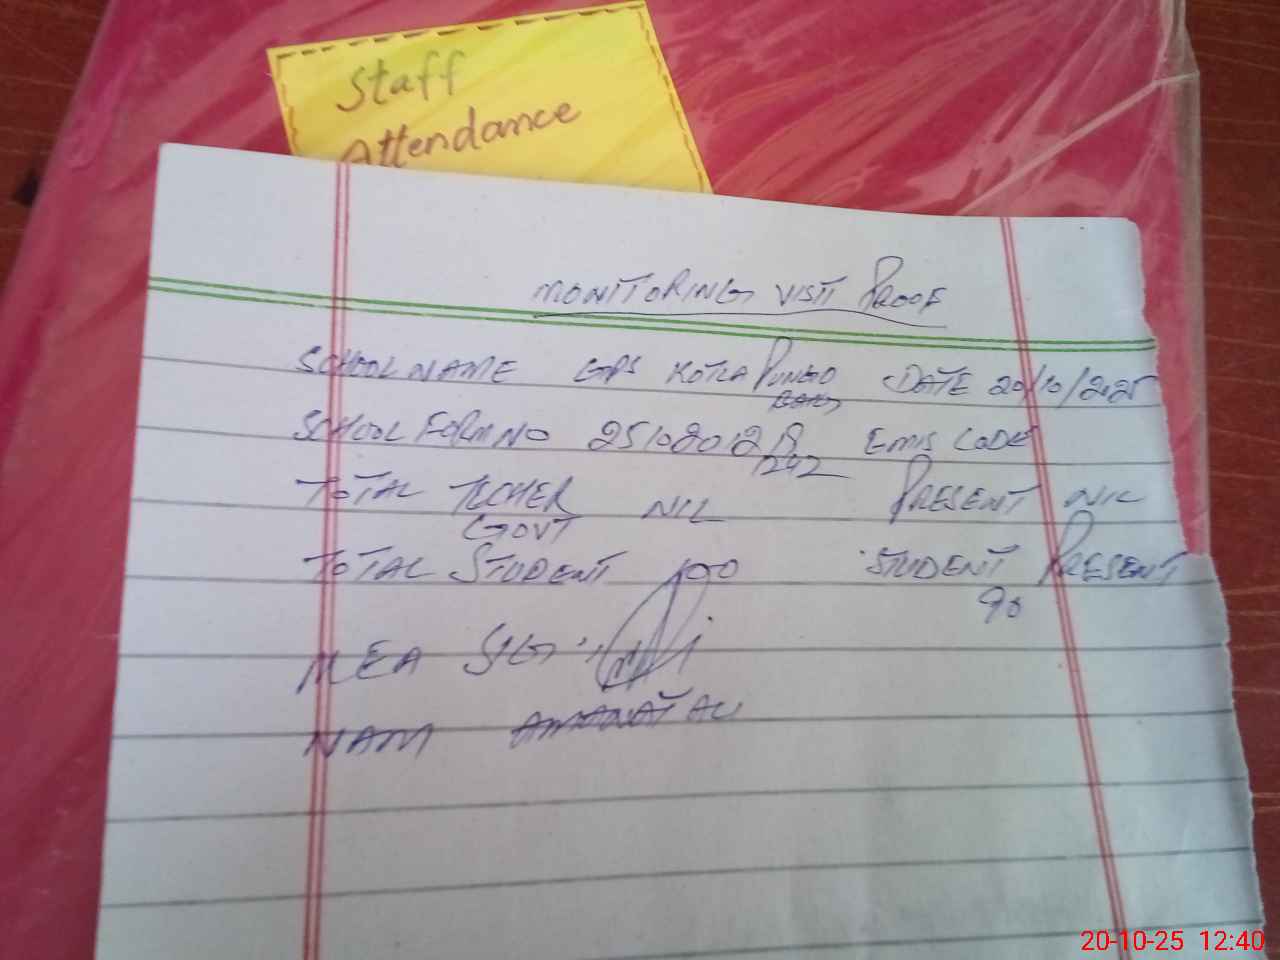 Staff
Attendance
MONITORING VISIT PROOF
SCHOOL NAME GPS KOTLA DATE 20/10/2025
SCHOOL FORM NO EMIS CODE
1242
TOTAL TECHER NIL PRESENT NIL
GOVT
TOTAL STUDENT 100 STUDENT PRESENT
90
MEA SIG:
NAM
20-10-25 12:40